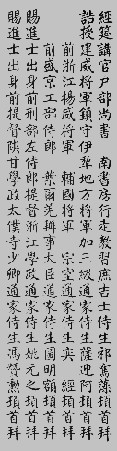 經筵講官戶部尚書　南書房行走教習庶吉士侍生祁寯藻頓首拜
誥授建威將軍鎮守伊犂地方將軍加三級通家侍生薩迎阿頓首拜
前浙江揚威將軍　輔國將軍　宗室通家侍生奕　經頓首拜
前盛京工部侍郎　葉爾羌辦事大臣通家侍生圖明額頓首拜
賜進士出身前刑部左侍郎提督浙江學政通家侍生姚元之頓首拜
賜進士出身前提督陝甘學政太僕寺少卿通家侍生馮贊勳頓首拜